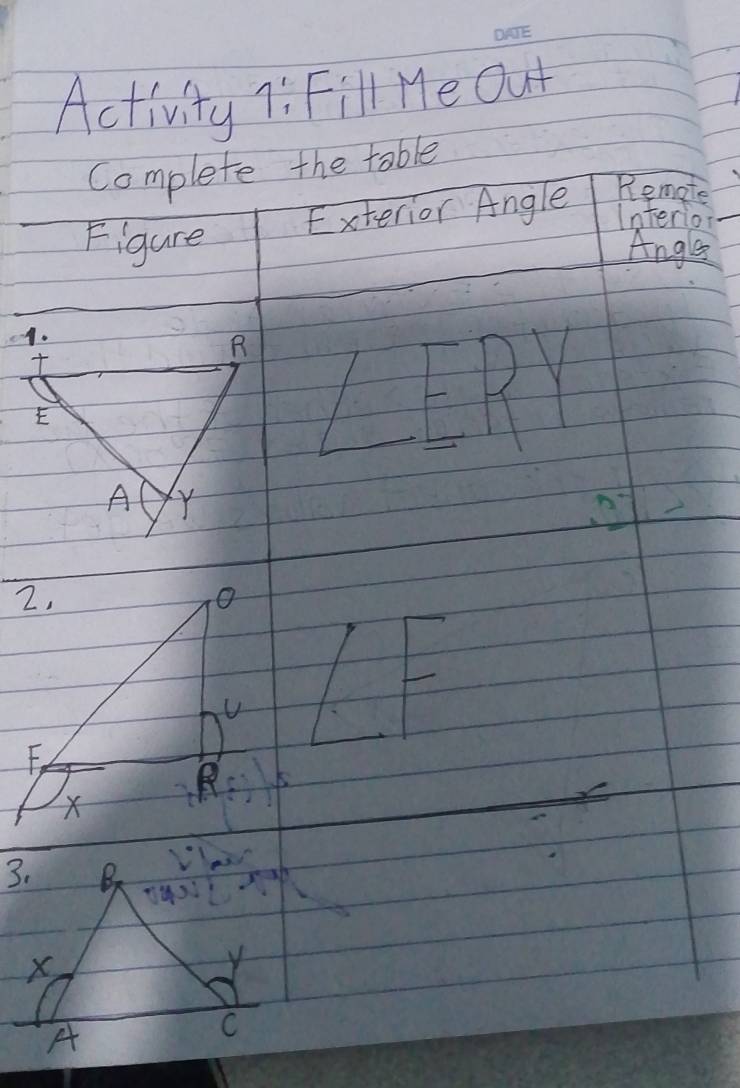 DATE
Activity 1: Fill Me Out
Complete the table
Figure Exterior Angle Remote Interior Angles
1.
T R
E
A Y
∠ERY
2.
O
U
F
R
X
∠F
3.
B
X Y
A C